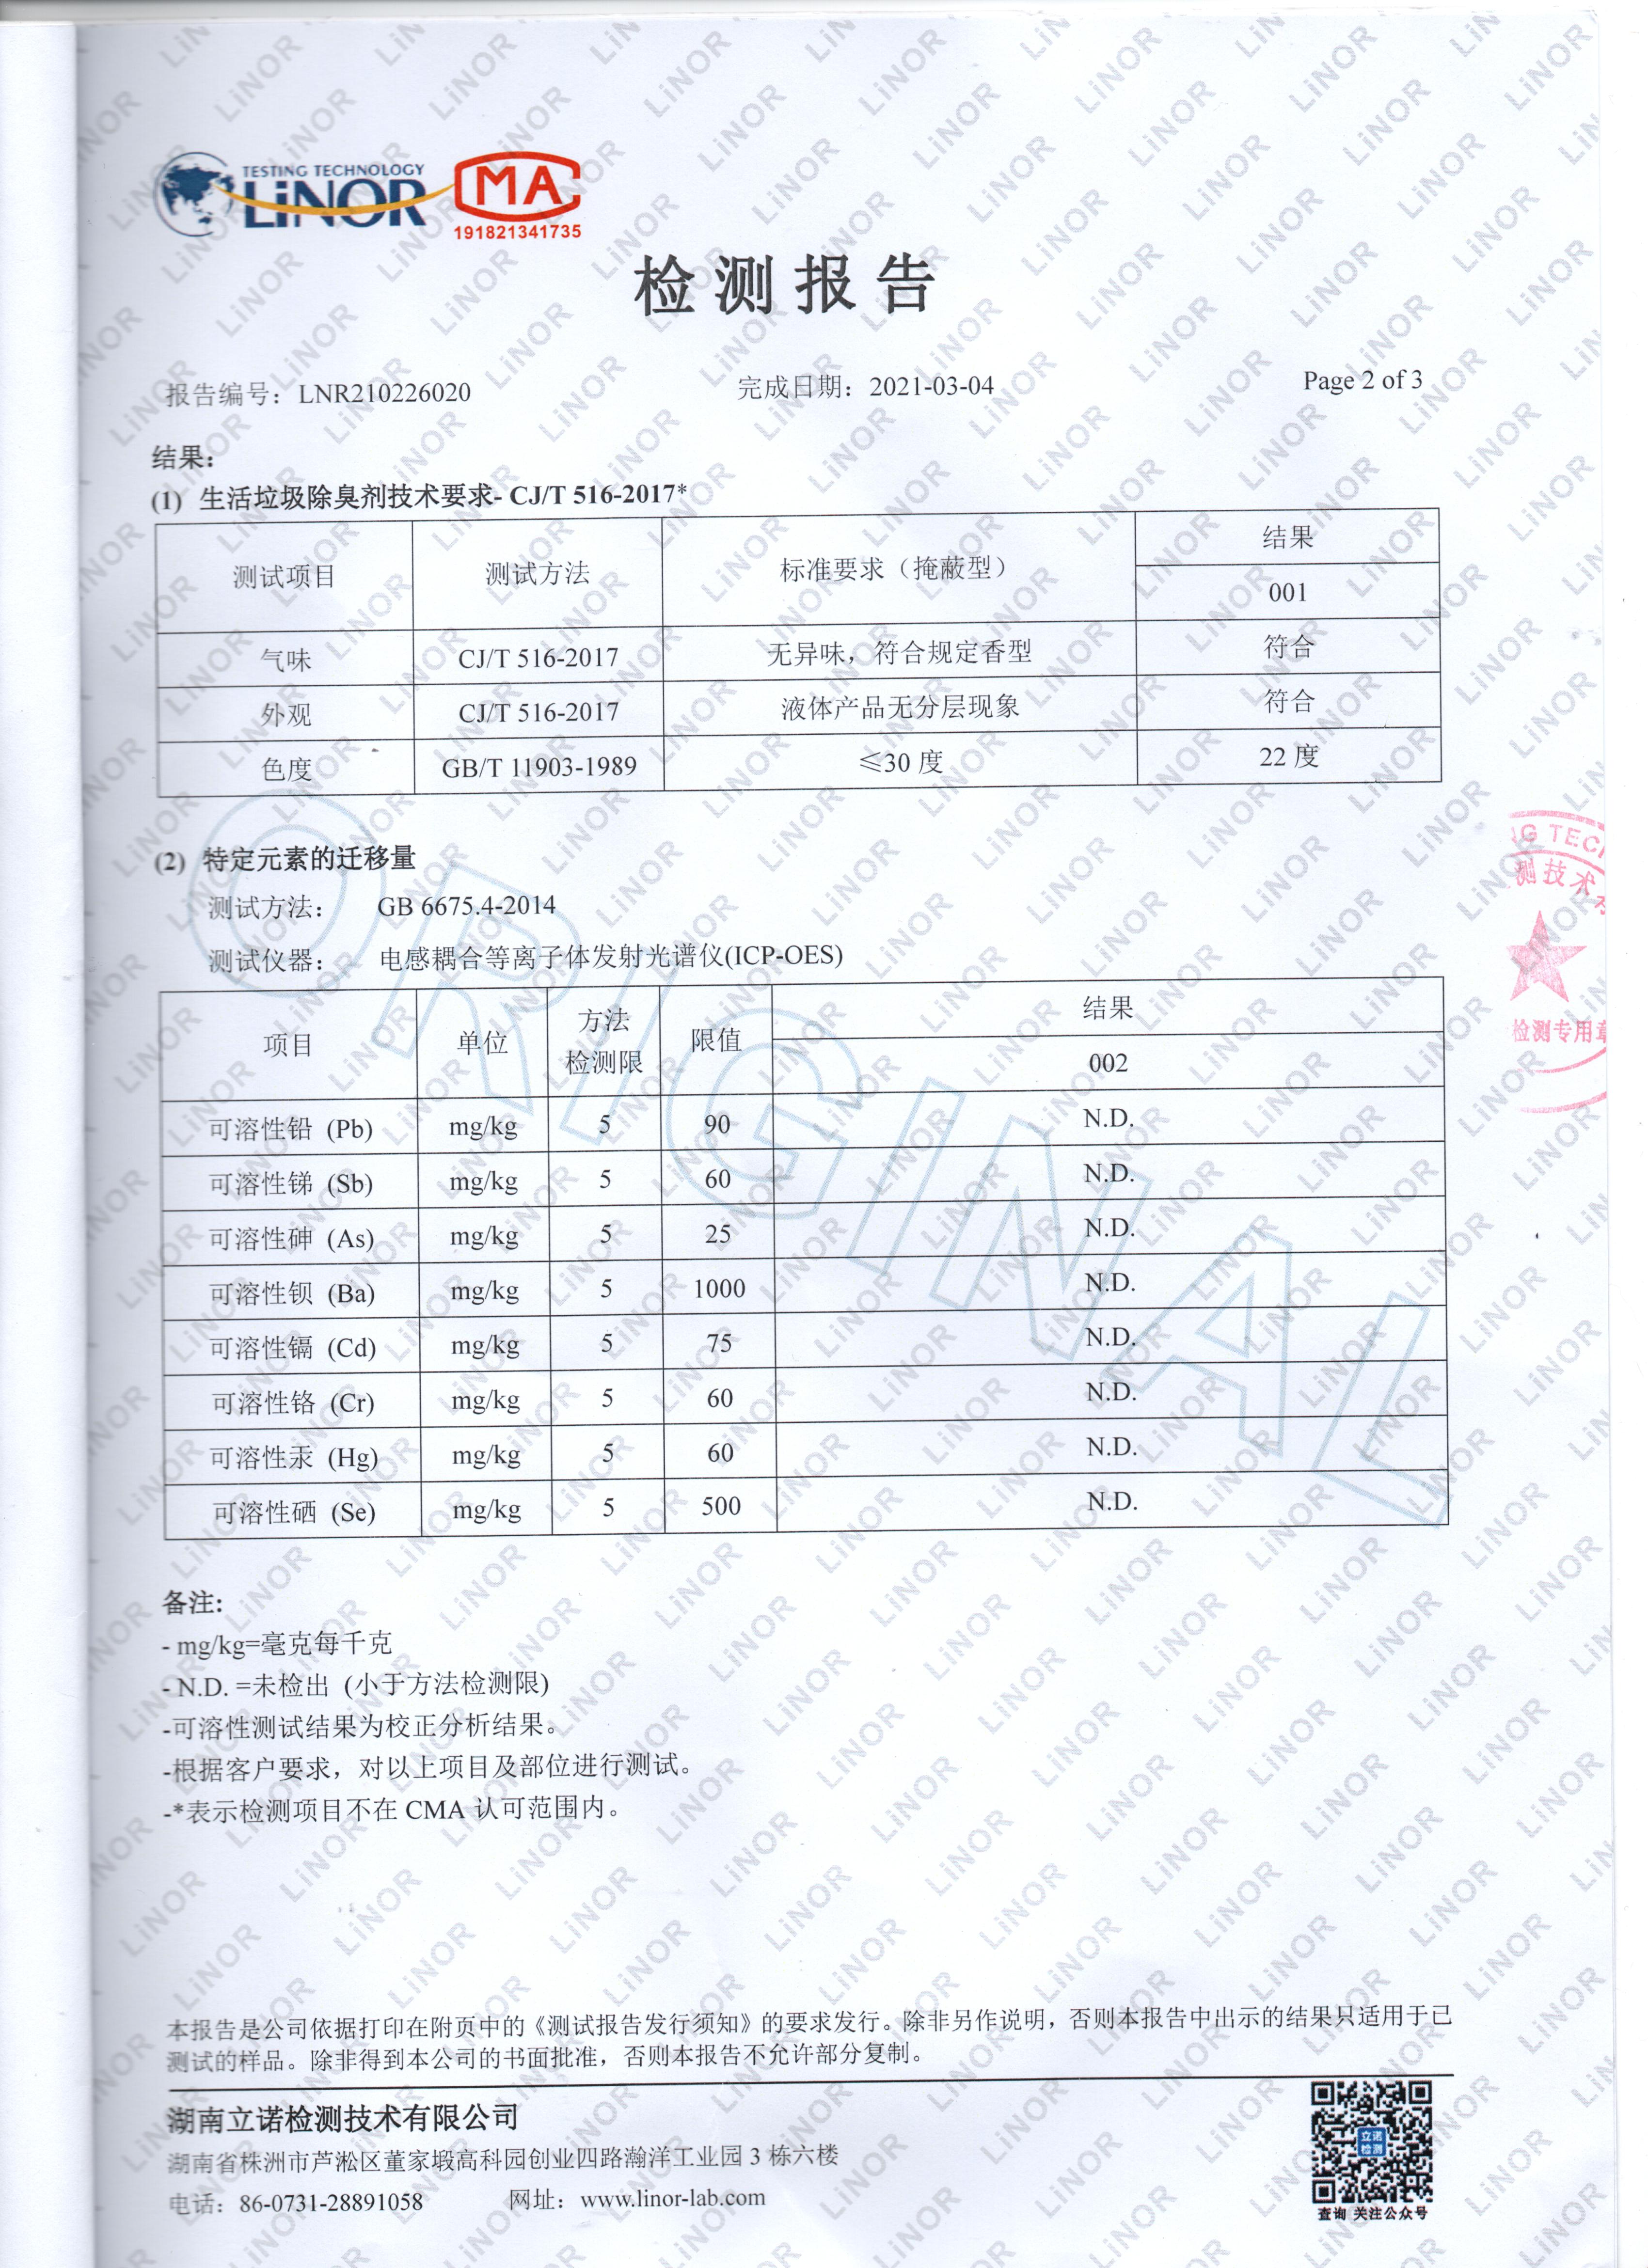 TESTING TECHNOLOGY
LiNOR
MA
191821341735
检测报告
报告编号：LNR210226020 完成日期：2021-03-04 Page 2 of 3
结果：
(1) 生活垃圾除臭剂技术要求- CJ/T 516-2017*
测试项目 测试方法 标准要求（掩蔽型） 结果
001
气味 CJ/T 516-2017 无异味，符合规定香型 符合
外观 CJ/T 516-2017 液体产品无分层现象 符合
色度 GB/T 11903-1989 ≤30 度 22 度
(2) 特定元素的迁移量
测试方法： GB 6675.4-2014
测试仪器： 电感耦合等离子体发射光谱仪(ICP-OES)
项目 单位 方法检测限 限值 结果
002
可溶性铅 (Pb) mg/kg 5 90 N.D.
可溶性锑 (Sb) mg/kg 5 60 N.D.
可溶性砷 (As) mg/kg 5 25 N.D.
可溶性钡 (Ba) mg/kg 5 1000 N.D.
可溶性镉 (Cd) mg/kg 5 75 N.D.
可溶性铬 (Cr) mg/kg 5 60 N.D.
可溶性汞 (Hg) mg/kg 5 60 N.D.
可溶性硒 (Se) mg/kg 5 500 N.D.
ORIGINAL
备注:
- mg/kg=毫克每千克
- N.D. =未检出 (小于方法检测限)
-可溶性测试结果为校正分析结果。
-根据客户要求，对以上项目及部位进行测试。
-*表示检测项目不在 CMA 认可范围内。
测技术
检测专用章
本报告是公司依据打印在附页中的《测试报告发行须知》的要求发行。除非另作说明，否则本报告中出示的结果只适用于已
测试的样品。除非得到本公司的书面批准，否则本报告不允许部分复制。
湖南立诺检测技术有限公司
湖南省株洲市芦淞区董家塅高科园创业四路瀚洋工业园 3 栋六楼
电话：86-0731-28891058 网址：www.linor-lab.com
立诺
检测
查询 关注公众号